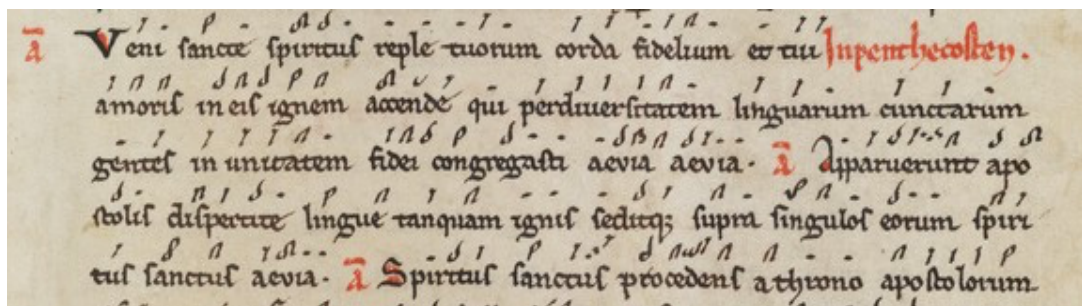 a Veni sancte spiritus reple tuorum corda fidelium et tui In penthecosten.
amoris in eis ignem accende qui per diuersitatem linguarum cunctarum
gentes in unitatem fidei congregasti aevia aevia. a Apparuerunt apo
stolis dispertite lingue tanquam ignis seditq; supra singulos eorum spiri
tus sanctus aevia. a Spiritus sanctus procedens a throno apostolorum